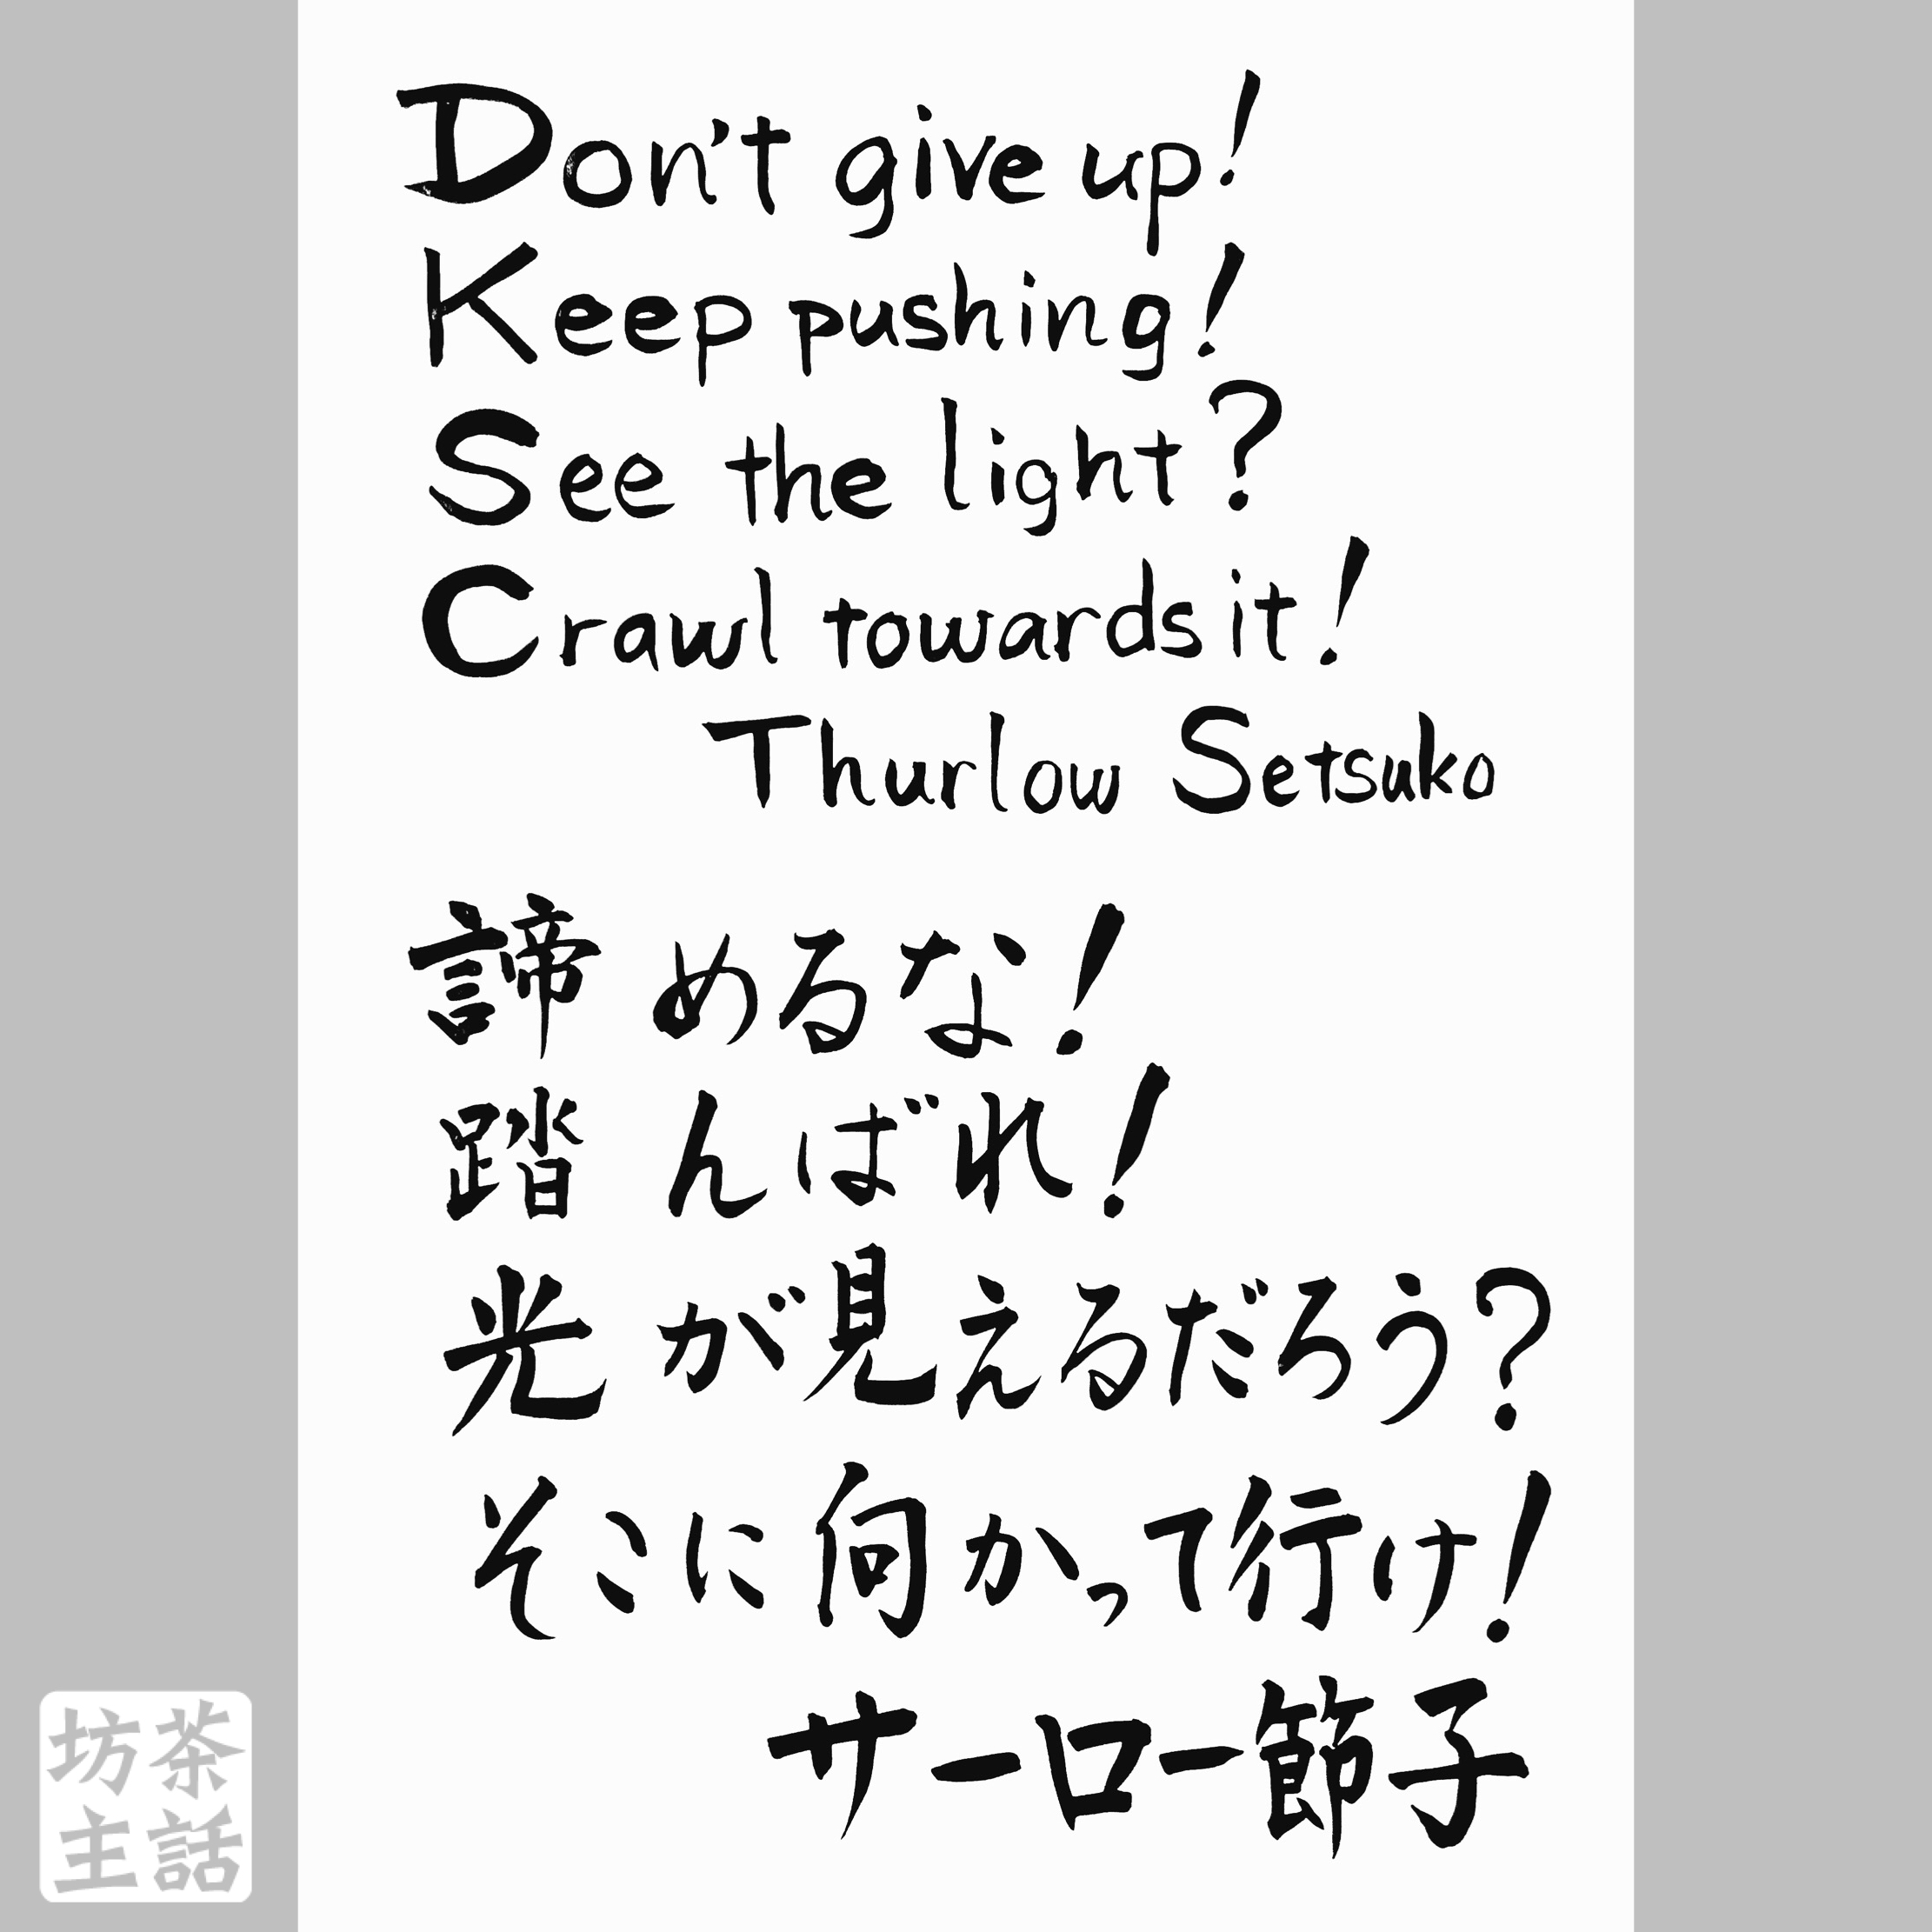 Don't give up!
Keep pushing!
See the light?
Crawl towards it!
Thurlow Setsuko
諦めるな!
踏んばれ!
光が見えるだろう?
そこに向かって行け!
サーロー節子
茶話
坊主